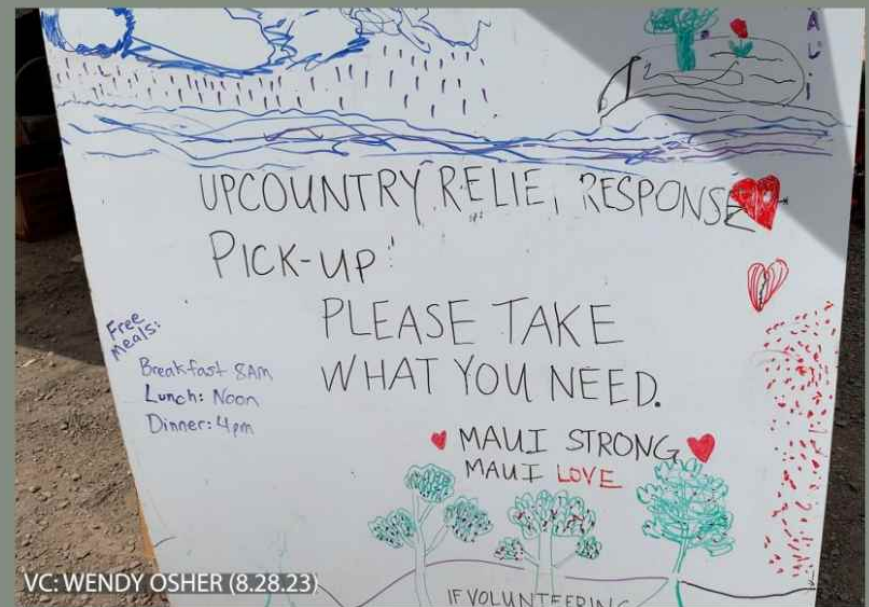 AUI
UPCOUNTRY RELIE, RESPONSE
PICK-UP
PLEASE TAKE
WHAT YOU NEED.
Free
Meals:
Breakfast 8Am
Lunch: Noon
Dinner: 4pm
MAUI STRONG
MAUI LOVE
IF VOLUNTEERING
VC: WENDY OSHER (8.28.23)